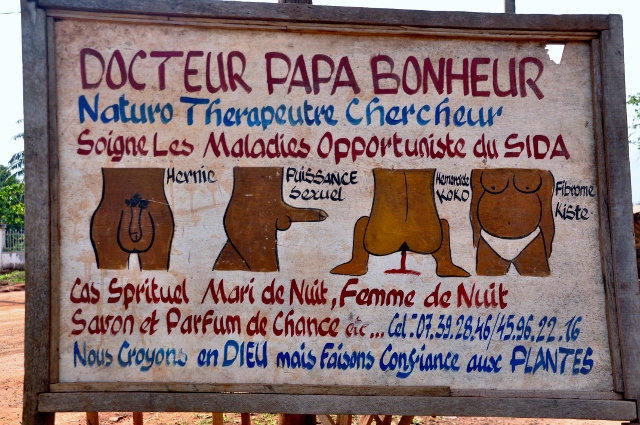 DOCTEUR PAPA BONHEUR
Naturo Therapeutre Chercheur
Soigne Les Maladies Opportuniste du SIDA
Hernie
PUISSANCE
Sexuel
Hemoroide
KOKO
Fibrome
Kiste
Cas Sprituel Mari de Nuit, Femme de Nuit
Savon et Parfum de Chance etc... Cel-07.39.28.46/45.96.22.16
Nous Croyons en DIEU mais Faisons Confiance aux PLANTES